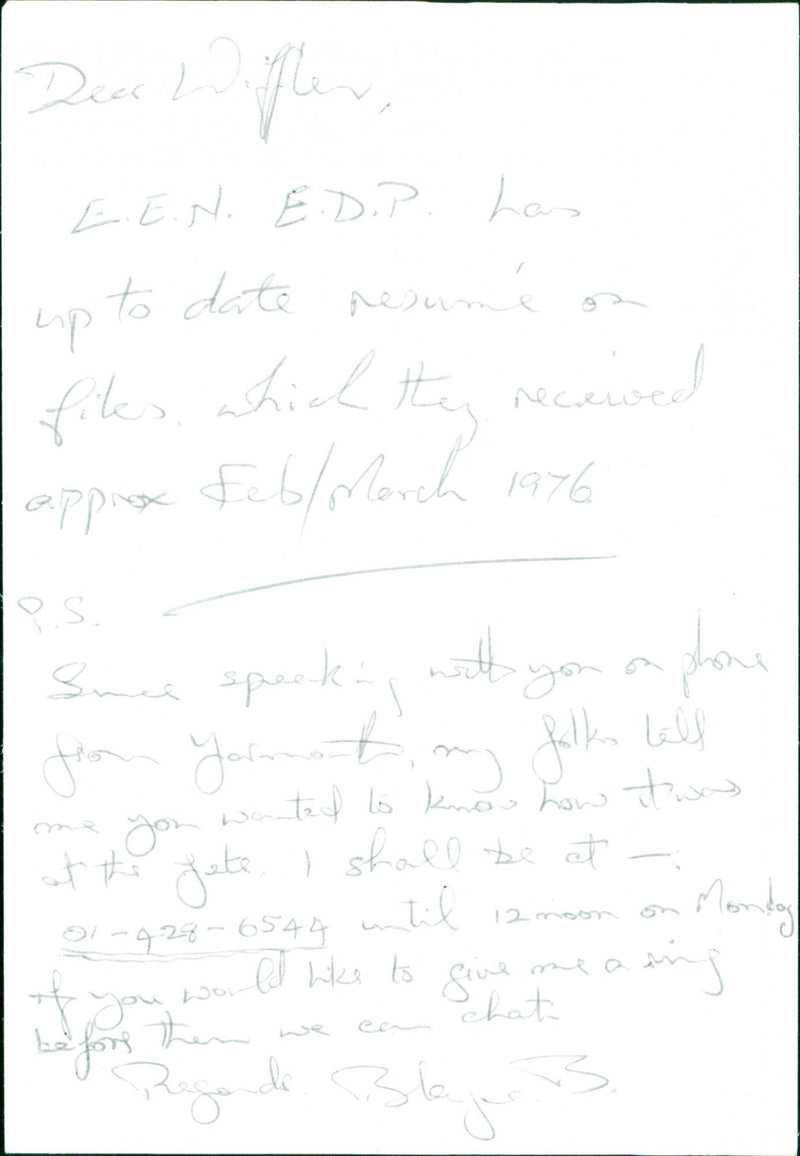 Dear Wiffler,
E.E.N. E.D.P. has
up to date resumé on
files, which they received
approx Feb/March 1976
P.S.
Since speaking with you on phone
from Yarmouth, my folks tell
me you wanted to know how it was
at the fete. I shall be at —:
01-428-6544 until 12 noon on Monday
if you would like to give me a ring
before then we can chat.
Regards. Blayne. B.